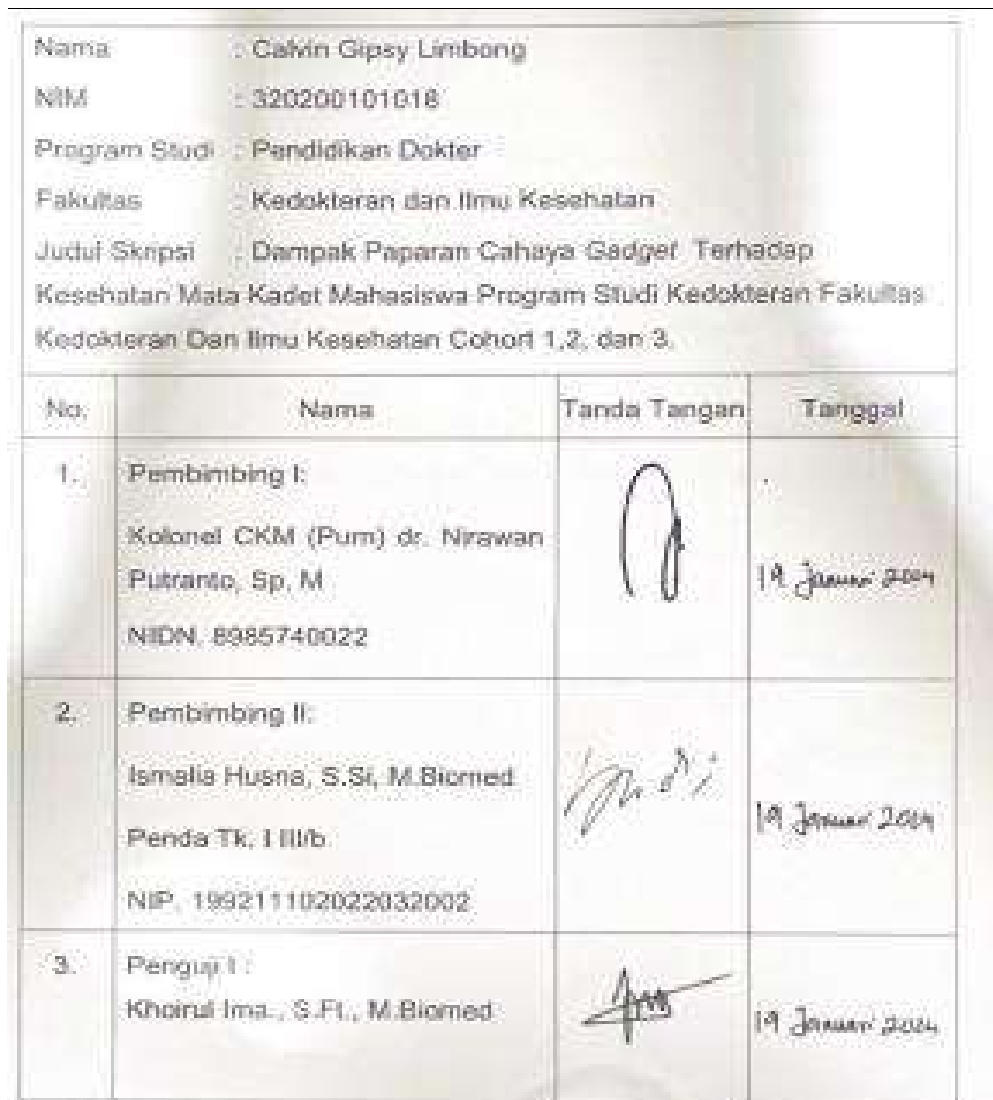 Nama : Calvin Gipsy Limbong
NIM : 320200101018
Program Studi : Pendidikan Dokter
Fakultas : Kedokteran dan Ilmu Kesehatan
Judul Skripsi : Dampak Paparan Cahaya Gadget Terhadap
Kesehatan Mata Kadet Mahasiswa Program Studi Kedokteran Fakultas
Kedokteran Dan Ilmu Kesehatan Cohort 1,2, dan 3.
No. Nama Tanda Tangan Tanggal
1. Pembimbing I:
Kolonel CKM (Purn) dr. Nirawan
Putranto, Sp. M
19 Januari 2024
NIDN. 8985740022
2. Pembimbing II:
Ismalia Husna, S.Si, M.Biomed
Penda Tk. I III/b
19 Januari 2024
NIP. 199211102022032002
3. Penguji I :
Khoirul Ima., S.Ft., M.Biomed
19 Januari 2024